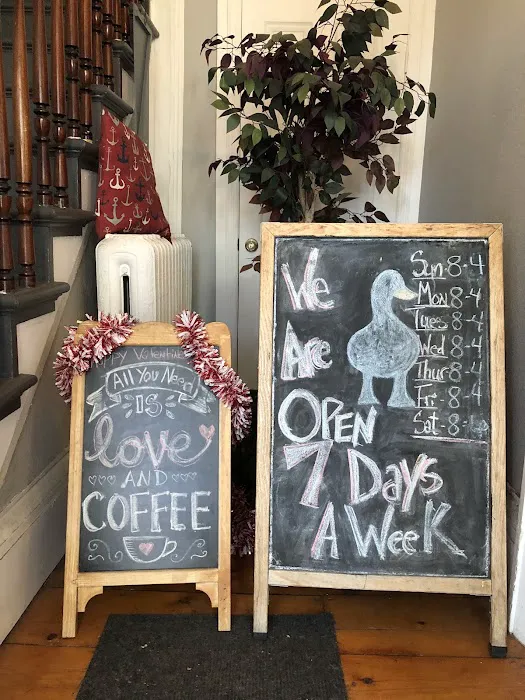 Happy Valentine's
All You Need
IS
love
AND
COFFEE
We
Are
OPEN
7 Days
A Week
Sun 8-4
Mon 8-4
Tues 8-4
Wed 8-4
Thur 8-4
Fri 8-4
Sat 8-